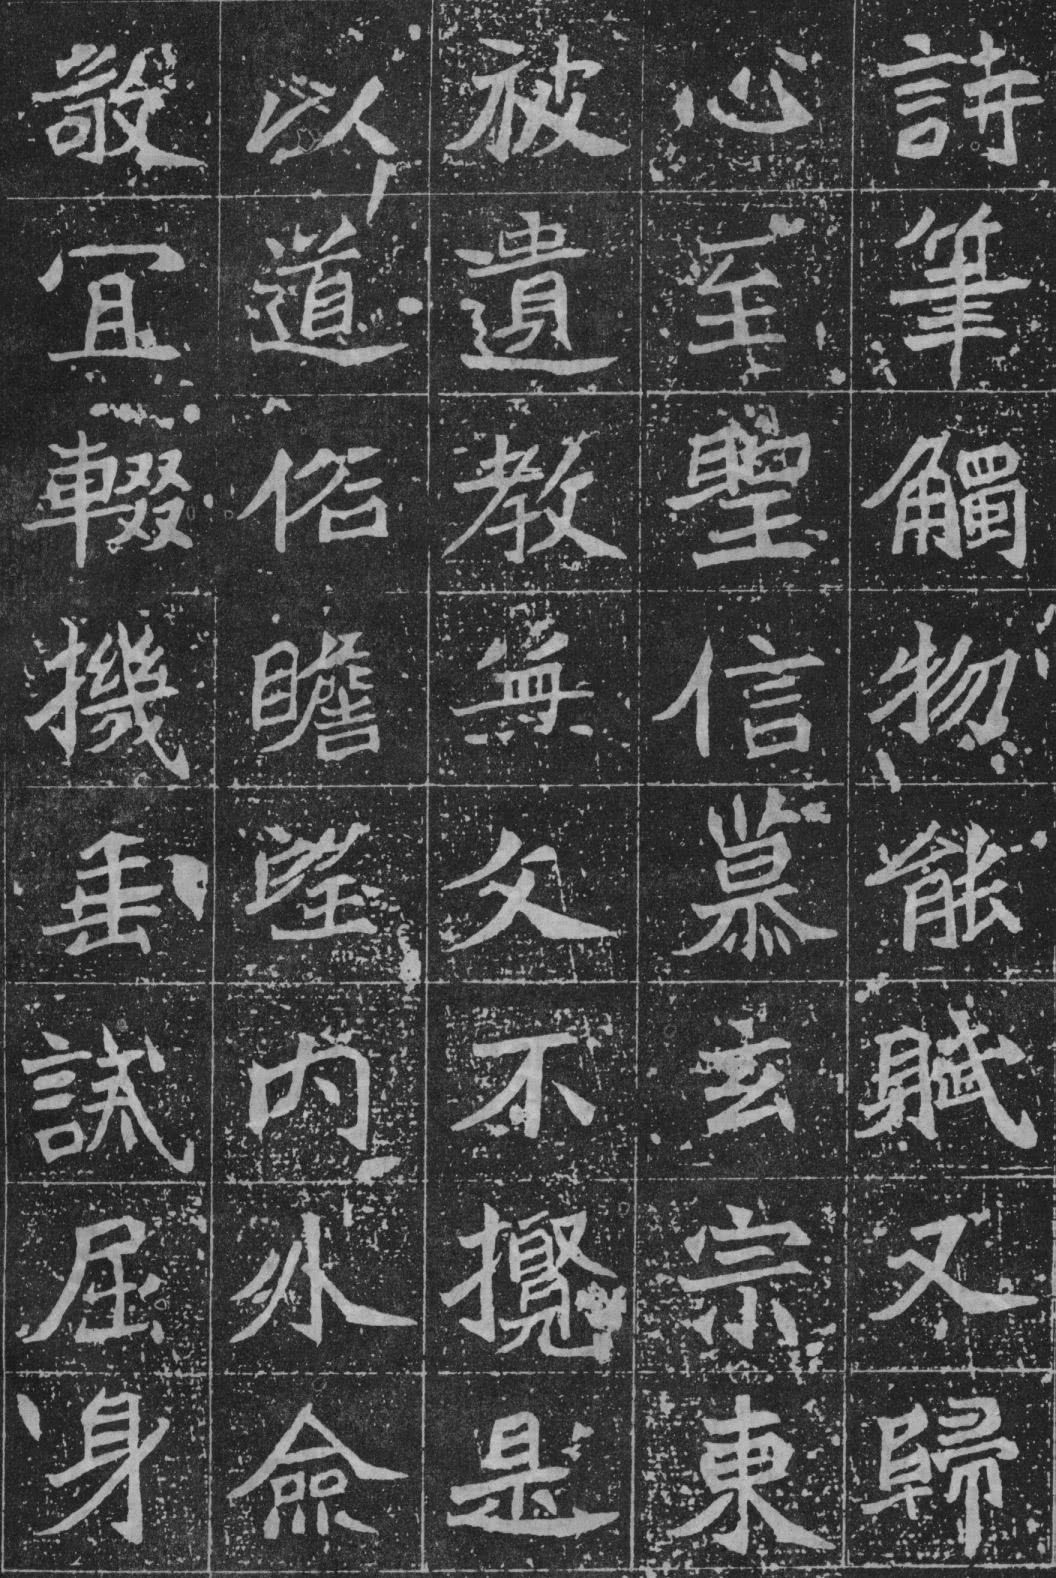 詩筆觸物能賦又歸
心至聖信慕玄宗東
被遺教無文不攬是
以道俗瞻望内外僉
敬宜輟機垂試屈身